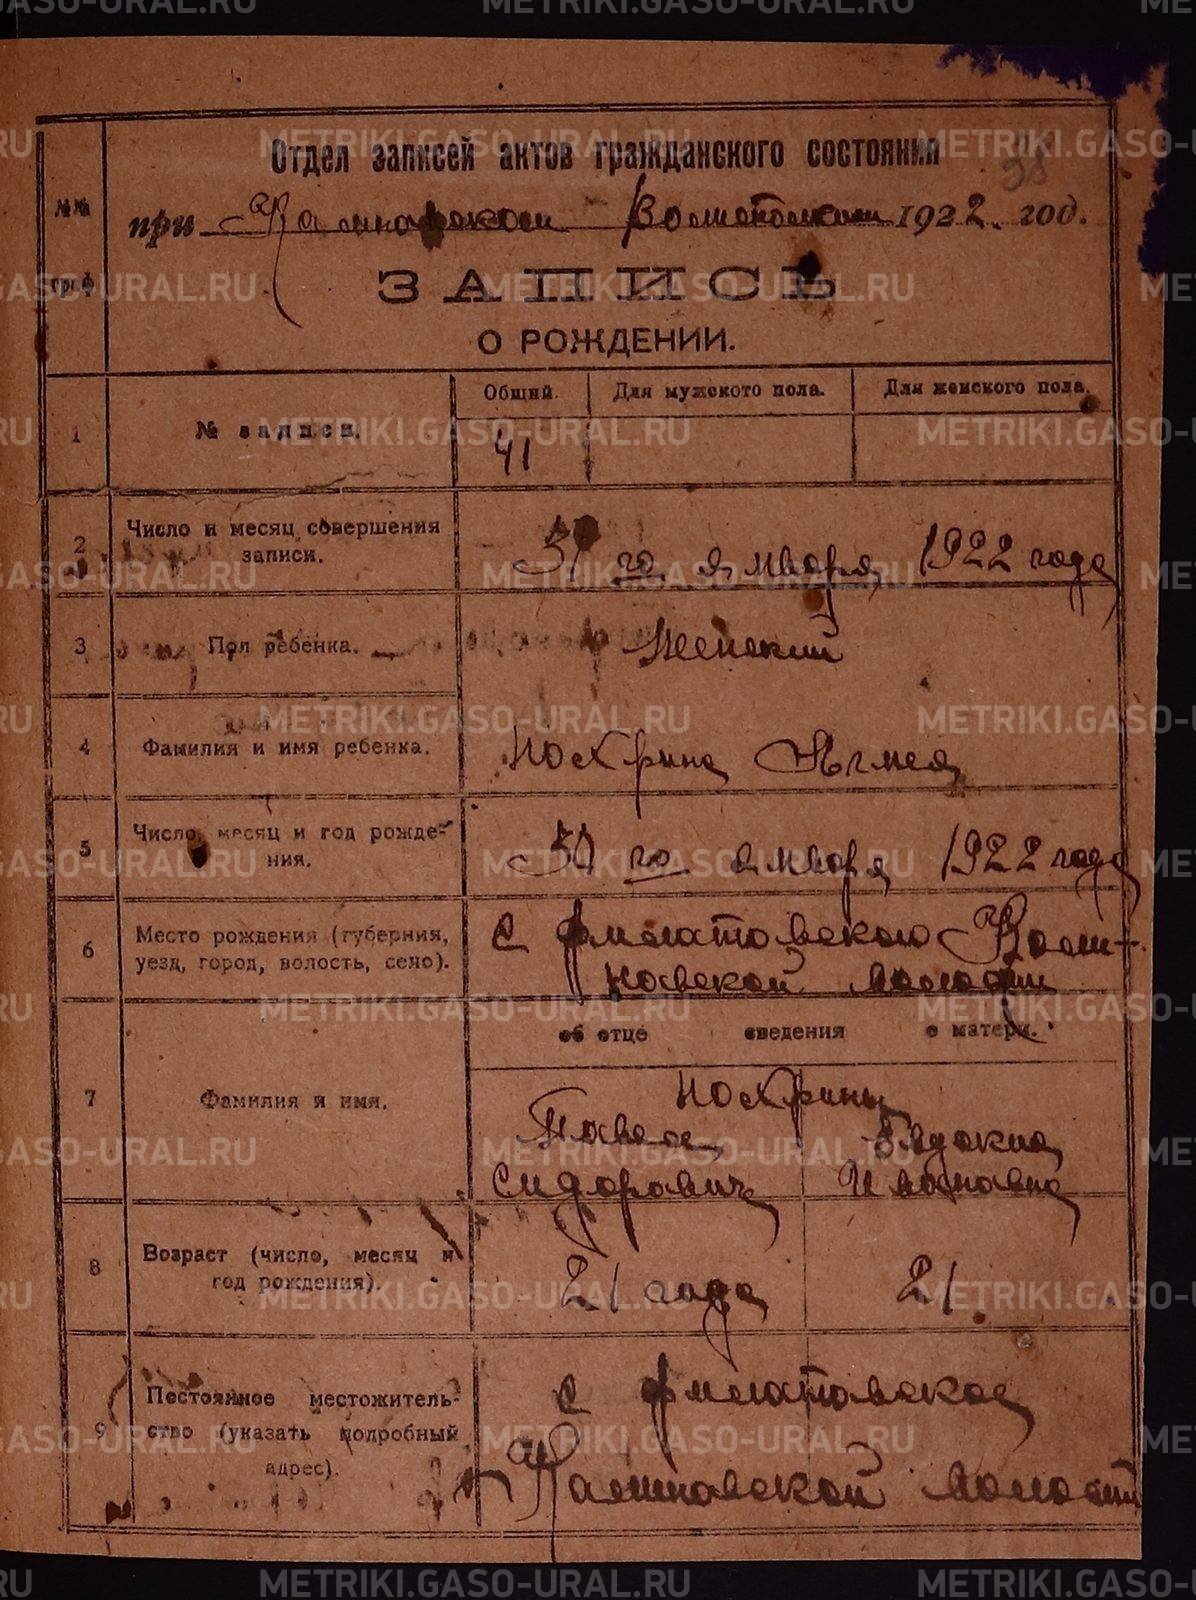 METRIKI.GASO-URAL.RU
Отдел записей актов гражданского состояния
38
№№ граф
при Волисполкоме 1922 год.
ЗАПИСЬ
О РОЖДЕНИИ.
1 № записи. Общий. Для мужского пола. Для женского пола.
41
2 Число и месяц совершения
записи.
31 го января 1922 года
3 Пол ребенка. Женский
4 Фамилия и имя ребенка. Носкрина
5 Число, месяц и год рожде-
ния.
го января 1922 года
6 Место рождения (губерния,
уезд, город, волость, село).
с Филатовского
новской волости
об отце сведения о матери.
7 Фамилия и имя.
Носкрины
Павел Евдокия
Сидорович Ивановна
8 Возраст (число, месяц и
год рождения).
21 года 21
9 Постоянное местожитель-
ство (указать подробный
адрес).
с Филатовское
волости